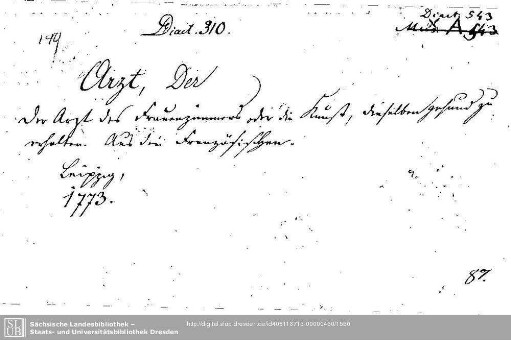 Diaet. 310.
Diaet. 543
149
Arzt, Der
Der Arzt des Frauenzimmers oder die Kunst, dieselben gesund zu
erhalten. Aus dem Französischen.
Leipzig,
1773.
87.
Sächsische Landesbibliothek –
Staats- und Universitätsbibliothek Dresden